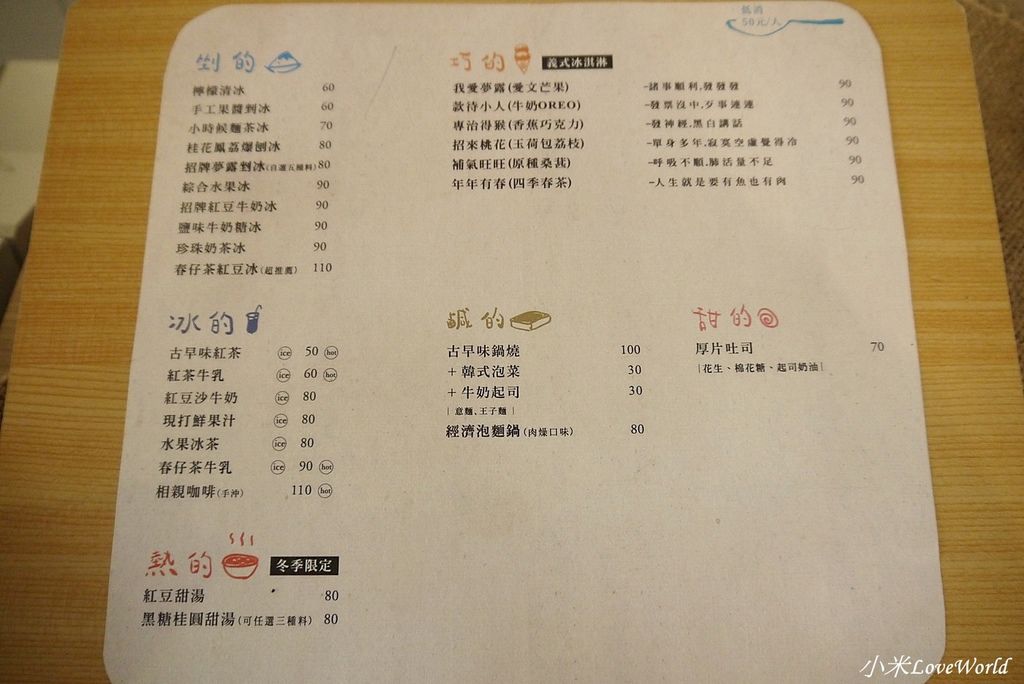 低消
50元/人
剉的
檸檬清冰 60
手工果醬剉冰 60
小時候麵茶冰 70
桂花鳳荔爆刨冰 80
招牌夢露剉冰(自選五種料) 80
綜合水果冰 90
招牌紅豆牛奶冰 90
鹽味牛奶糖冰 90
珍珠奶茶冰 90
春仔茶紅豆冰(超推薦) 110
巧的 義式冰淇淋
我愛夢露(愛文芒果) -諸事順利,發發發 90
款待小人(牛奶OREO) -發票沒中,歹事連連 90
專治得猴(香蕉巧克力) -發神經,黑白講話 90
招來桃花(玉荷包荔枝) -單身多年,寂寞空虛覺得冷 90
補氣旺旺(原種桑葚) -呼吸不順,肺活量不足 90
年年有春(四季春茶) -人生就是要有魚也有肉 90
冰的
古早味紅茶 ice 50 hot
紅茶牛乳 ice 60 hot
紅豆沙牛奶 ice 80
現打鮮果汁 ice 80
水果冰茶 ice 80
春仔茶牛乳 ice 90 hot
相親咖啡(手沖) 110 hot
鹹的
古早味鍋燒 100
+韓式泡菜 30
+牛奶起司 30
| 意麵、王子麵 |
經濟泡麵鍋(肉燥口味) 80
甜的
厚片吐司 70
|花生、棉花糖、起司奶油|
熱的 冬季限定
紅豆甜湯 80
黑糖桂圓甜湯(可任選三種料) 80
小米LoveWorld